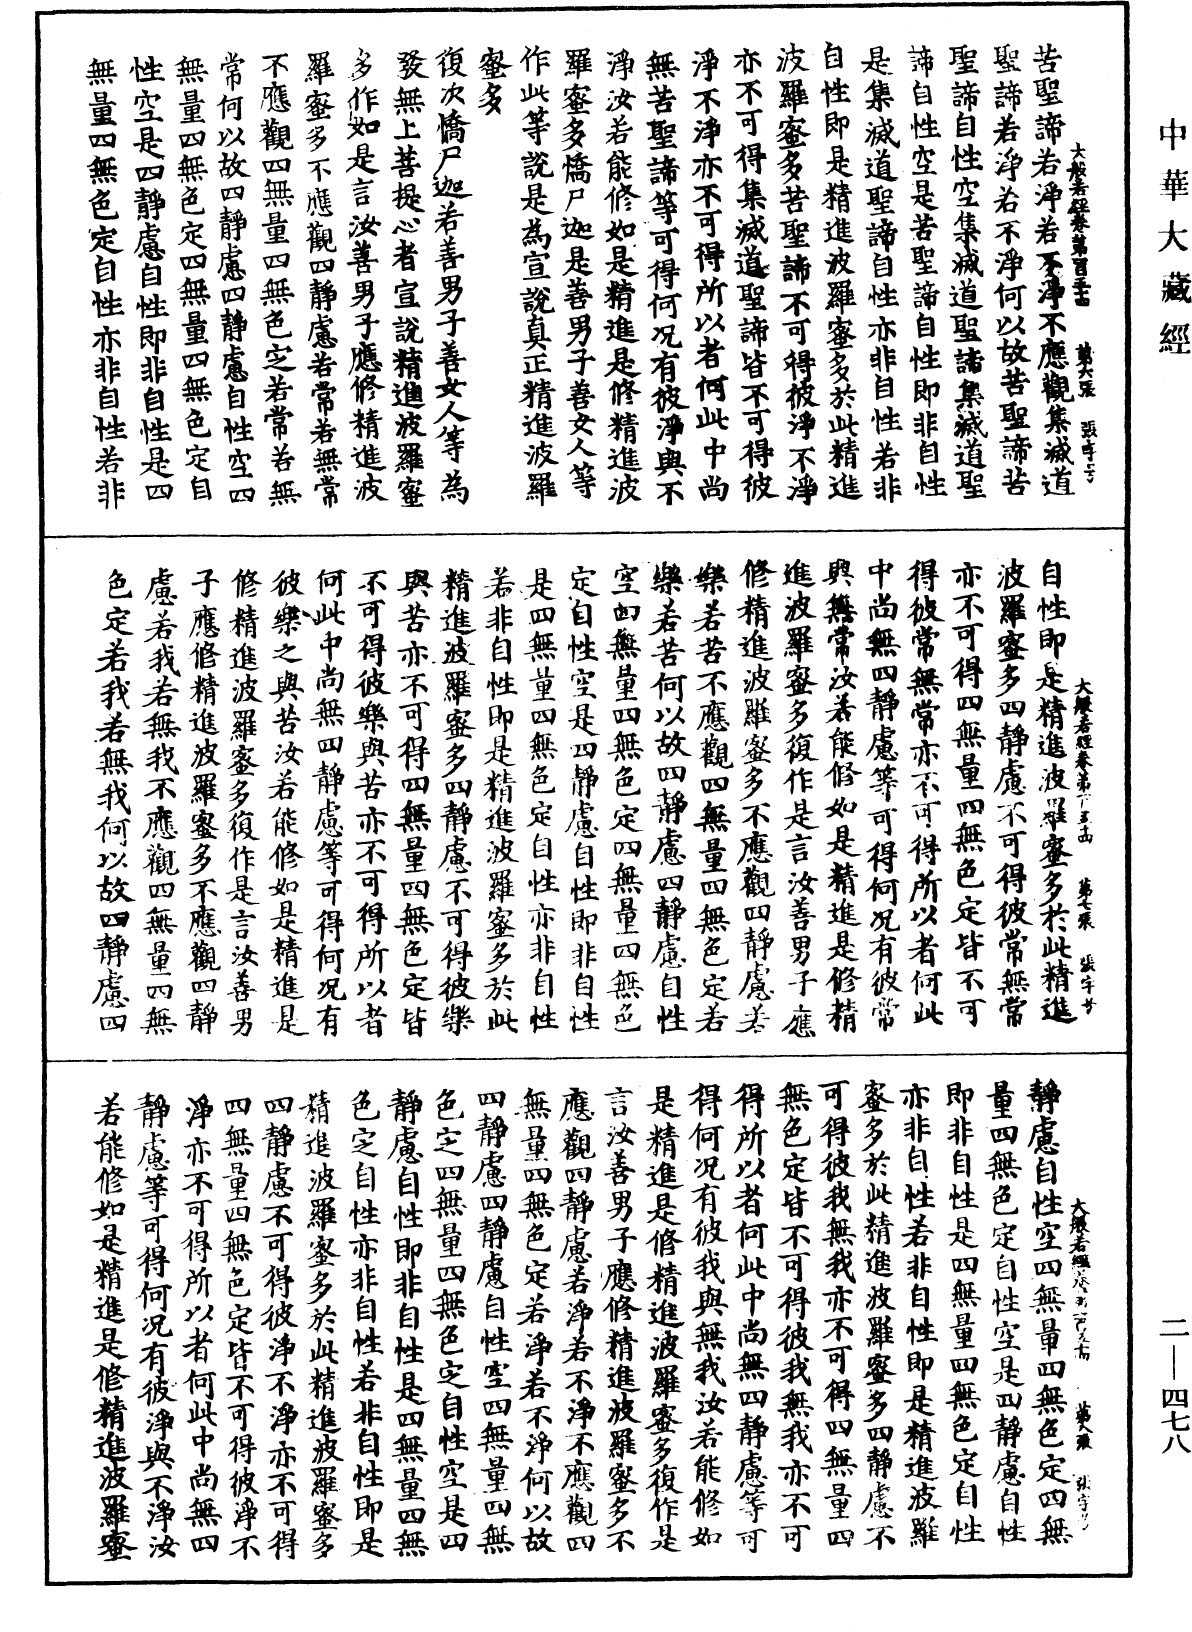 中華大藏經
苦聖諦若淨若不淨不應觀集滅道
聖諦若淨若不淨何以故苦聖諦苦
聖諦自性空集滅道聖諦集滅道聖
諦自性空是苦聖諦自性即非自性
是集滅道聖諦自性亦非自性若非
自性即是精進波羅蜜多於此精進
波羅蜜多苦聖諦不可得彼淨不淨
亦不可得集滅道聖諦皆不可得彼
淨不淨亦不可得所以者何此中尚
無苦聖諦等可得何況有彼淨與不
淨汝若能修如是精進是修精進波
羅蜜多憍尸迦是善男子善女人等
作此等說是為宣說真正精進波羅
蜜多
復次憍尸迦若善男子善女人等為
發無上菩提心者宣說精進波羅蜜
多作如是言汝善男子應修精進波
羅蜜多不應觀四靜慮若常若無常
不應觀四無量四無色定若常若無
常何以故四靜慮四靜慮自性空四
無量四無色定四無量四無色定自
性空是四靜慮自性即非自性是四
無量四無色定自性亦非自性若非
大般若經卷第 第六張 張字
自性即是精進波羅蜜多於此精進
波羅蜜多四靜慮不可得彼常無常
亦不可得四無量四無色定皆不可
得彼常無常亦不可得所以者何此
中尚無四靜慮等可得何況有彼常
與無常汝若能修如是精進是修精
進波羅蜜多復作是言汝善男子應
修精進波羅蜜多不應觀四靜慮若
樂若苦不應觀四無量四無色定若
樂若苦何以故四靜慮四靜慮自性
空四無量四無色定四無量四無色
定自性空是四靜慮自性即非自性
是四無量四無色定自性亦非自性
若非自性即是精進波羅蜜多於此
精進波羅蜜多四靜慮不可得彼樂
與苦亦不可得四無量四無色定皆
不可得彼樂與苦亦不可得所以者
何此中尚無四靜慮等可得何況有
彼樂之與苦汝若能修如是精進是
修精進波羅蜜多復作是言汝善男
子應修精進波羅蜜多不應觀四靜
慮若我若無我不應觀四無量四無
色定若我若無我何以故四靜慮四
大般若經卷第 第七張 張字
靜慮自性空四無量四無色定四無
量四無色定自性空是四靜慮自性
即非自性是四無量四無色定自性
亦非自性若非自性即是精進波羅
蜜多於此精進波羅蜜多四靜慮不
可得彼我無我亦不可得四無量四
無色定皆不可得彼我無我亦不可
得所以者何此中尚無四靜慮等可
得何況有彼我與無我汝若能修如
是精進是修精進波羅蜜多復作是
言汝善男子應修精進波羅蜜多不
應觀四靜慮若淨若不淨不應觀四
無量四無色定若淨若不淨何以故
四靜慮四靜慮自性空四無量四無
色定四無量四無色定自性空是四
靜慮自性即非自性是四無量四無
色定自性亦非自性若非自性即是
精進波羅蜜多於此精進波羅蜜多
四靜慮不可得彼淨不淨亦不可得
四無量四無色定皆不可得彼淨不
淨亦不可得所以者何此中尚無四
靜慮等可得何況有彼淨與不淨汝
若能修如是精進是修精進波羅蜜
大般若經卷第 第八張 張字
二—四七八